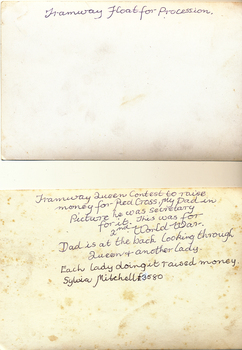 Tramway Float for Procession.
Tramway Queen Contest to raise
money for Red Cross, My Dad in
Picture he was secretary
for it. This was for
2nd World-War.
Dad is at the back looking through
Queen & another lady.
Each lady doing it raised money.
Sylvia Mitchell 3580